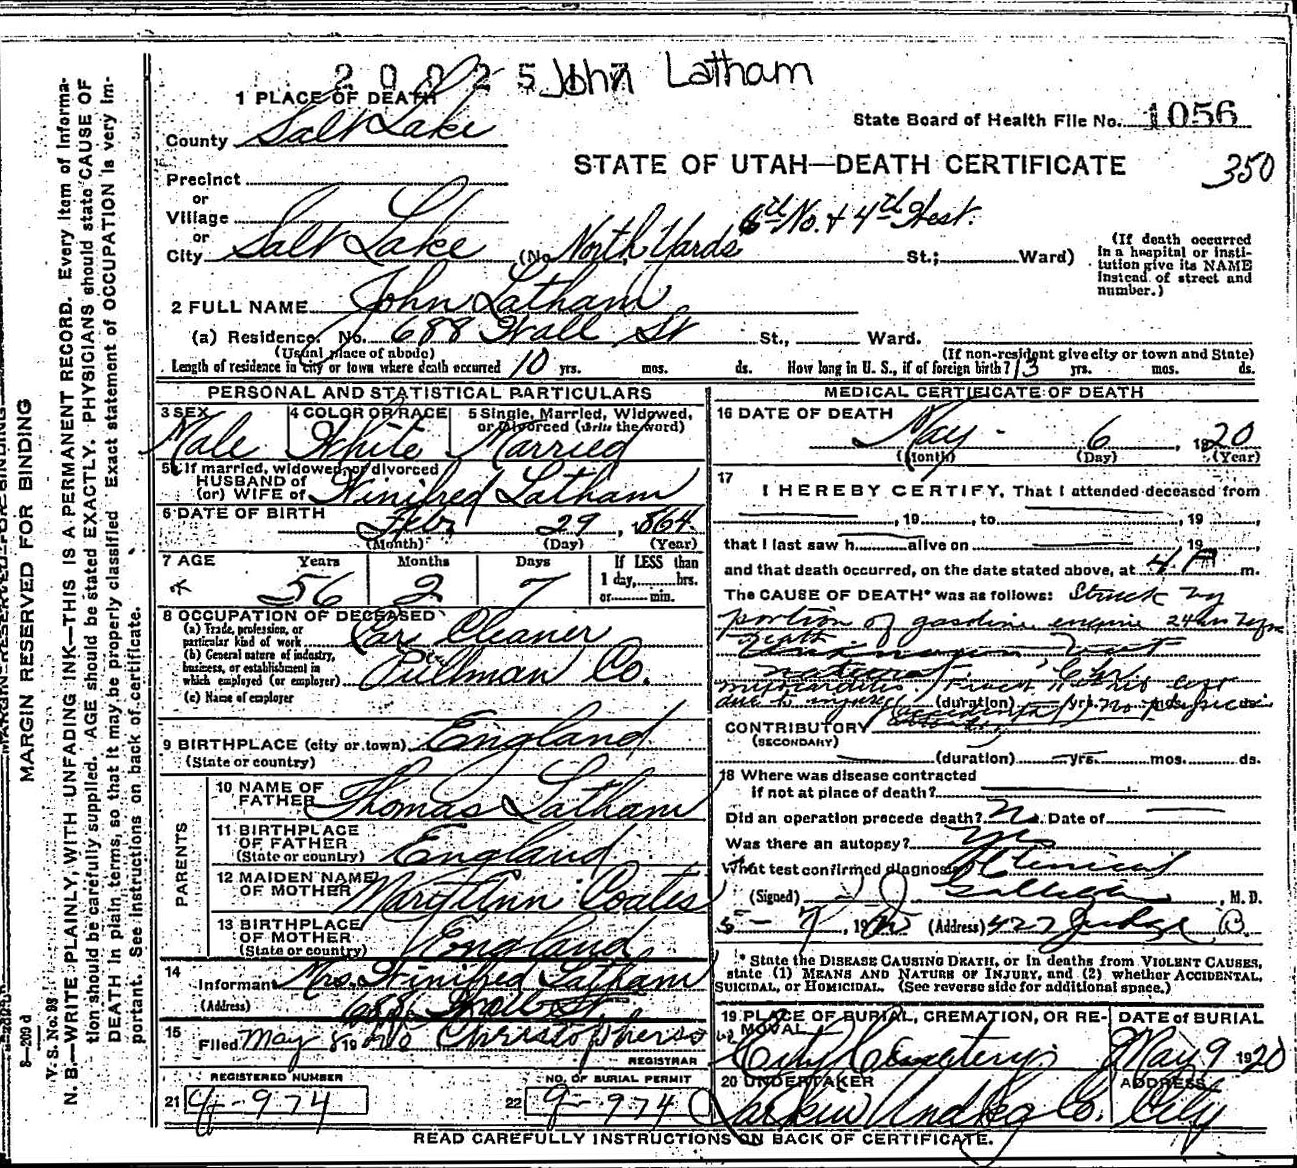 2 0 0 2 5 John Latham
1 PLACE OF DEATH
County Salt Lake
State Board of Health File No. 1056
STATE OF UTAH—DEATH CERTIFICATE
350
Precinct
or
Village
or
City Salt Lake (No. North Yards 6th No. & 4th West. St.; Ward)
(If death occurred in a hospital or institution give its NAME instead of street and number.)
2 FULL NAME John Latham
(a) Residence. No. 688 Wall St St., Ward.
(Usual place of abode) (If non-resident give city or town and State)
Length of residence in city or town where death occurred 10 yrs. mos. ds. How long in U. S., if of foreign birth? 13 yrs. mos. ds.
PERSONAL AND STATISTICAL PARTICULARS
3 SEX 4 COLOR OR RACE 5 Single, Married, Widowed, or Divorced (write the word)
Male White Married
5a If married, widowed, or divorced
HUSBAND of
(or) WIFE of Winifred Latham
6 DATE OF BIRTH Feb. 29, 1864
(Month) (Day) (Year)
7 AGE Years Months Days If LESS than
56 2 7 1 day, hrs.
or min.
8 OCCUPATION OF DECEASED
(a) Trade, profession, or particular kind of work Car Cleaner
(b) General nature of industry, business, or establishment in which employed (or employer) Pullman Co.
(c) Name of employer
9 BIRTHPLACE (city or town) England
(State or country)
PARENTS
10 NAME OF FATHER Thomas Latham
11 BIRTHPLACE OF FATHER England
(State or country)
12 MAIDEN NAME OF MOTHER Mary Ann Coates
13 BIRTHPLACE OF MOTHER England
(State or country)
14
Informant Mrs. Winifred Latham
(Address) 688 Wall St
15
Filed May 8 1920
REGISTRAR
REGISTERED NUMBER NO. OF BURIAL PERMIT
21 G-974 22 G-974
MEDICAL CERTIFICATE OF DEATH
16 DATE OF DEATH
May 6 1920
(Month) (Day) (Year)
17
I HEREBY CERTIFY, That I attended deceased from
, 19 , to , 19 ,
that I last saw h alive on 19 ,
and that death occurred, on the date stated above, at 4 P m.
The CAUSE OF DEATH* was as follows: Struck by
portion of gasoline engine 24 hrs before
death
myocarditis.
due to injury (duration) yrs. mos. ds.
CONTRIBUTORY
(SECONDARY)
(duration) yrs. mos. ds.
18 Where was disease contracted
if not at place of death?
Did an operation precede death? No. Date of
Was there an autopsy? no
What test confirmed diagnosis? Clinical
(Signed) , M. D.
5-7, 1920 (Address) 427 Judge B.
* State the DISEASE CAUSING DEATH, or in deaths from VIOLENT CAUSES, state (1) MEANS AND NATURE OF INJURY, and (2) whether ACCIDENTAL, SUICIDAL, or HOMICIDAL. (See reverse side for additional space.)
19 PLACE OF BURIAL, CREMATION, OR REMOVAL DATE of BURIAL
City Cemetery May 9 1920
20 UNDERTAKER ADDRESS
Larkin Undtkg Co. City
READ CAREFULLY INSTRUCTIONS ON BACK OF CERTIFICATE.
MARGIN RESERVED FOR BINDING
V. S. No. 98
N. B.—WRITE PLAINLY, WITH UNFADING INK—THIS IS A PERMANENT RECORD. Every item of information should be carefully supplied. AGE should be stated EXACTLY. PHYSICIANS should state CAUSE OF DEATH in plain terms, so that it may be properly classified. Exact statement of OCCUPATION is very important. See instructions on back of certificate.